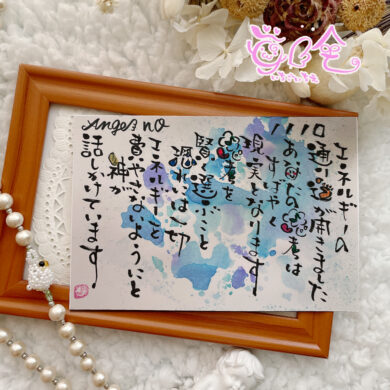 エネルギーの
通り道が開きました
1110
あなたの思考は
すばやく
現実となります
思考を
賢く選ぶこと
恐れは一切
エネルギーを
費やさないようにと
神が
話しかけています
Angel no